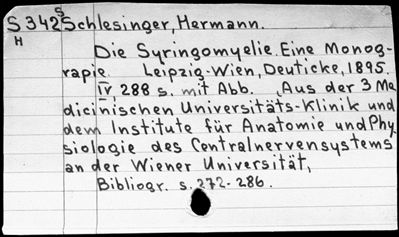 S 342 S Schlesinger, Hermann.
H
Die Syringomyelie. Eine Monog-
rapie. Leipzig-Wien, Deuticke, 1895.
IV, 288 s. mit Abb. Aus der 3 Me
dicinischen Universitäts-Klinik und
dem Institute für Anatomie und Phy
siologie des Centralnervensystems
an der Wiener Universität,
Bibliogr. s. 272-286.